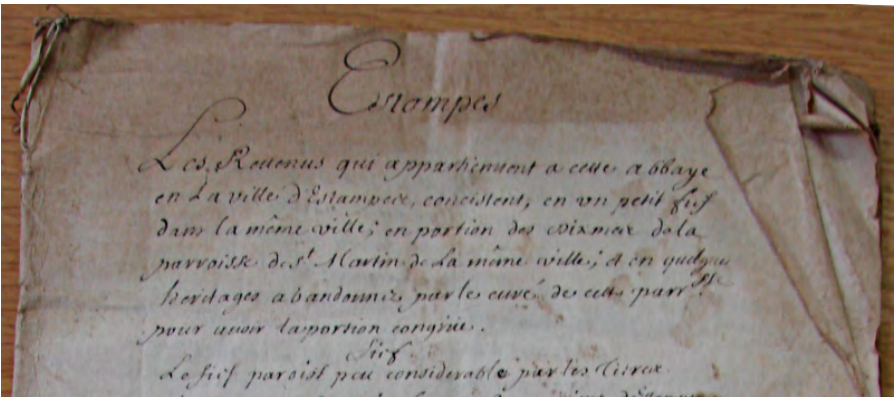 Estampes
Les Revenus qui appartiennent a cette abbaye
en La ville d'Estampes, concistent, en un petit fief
dans la même ville; en portion des dixmes de la
parroisse de St Martin de La même ville; et en quelques
heritages abandonnez par le curé de cette parr.sse
pour avoir la portion congrüe.
fief
Le fief paroist peu considerable par les titres